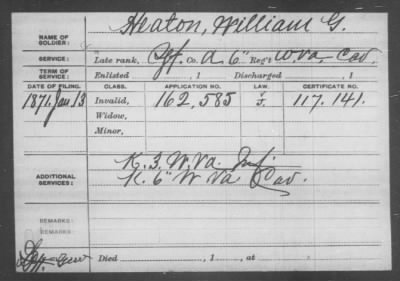 NAME OF SOLDIER: Heaton, William G.
SERVICE: Late rank, Co. A. 6" Reg't W Va Cav.
TERM OF SERVICE: Enlisted , 1 Discharged , 1
DATE OF FILING. CLASS. APPLICATION NO. LAW. CERTIFICATE NO.
1871. Jan 13 Invalid, 162,585 F. 117.141.
Widow,
Minor,
ADDITIONAL SERVICES: K. 3. W. Va. Inf.
K. 6" W Va Cav.
REMARKS:
REMARKS:
Died , 1 , at